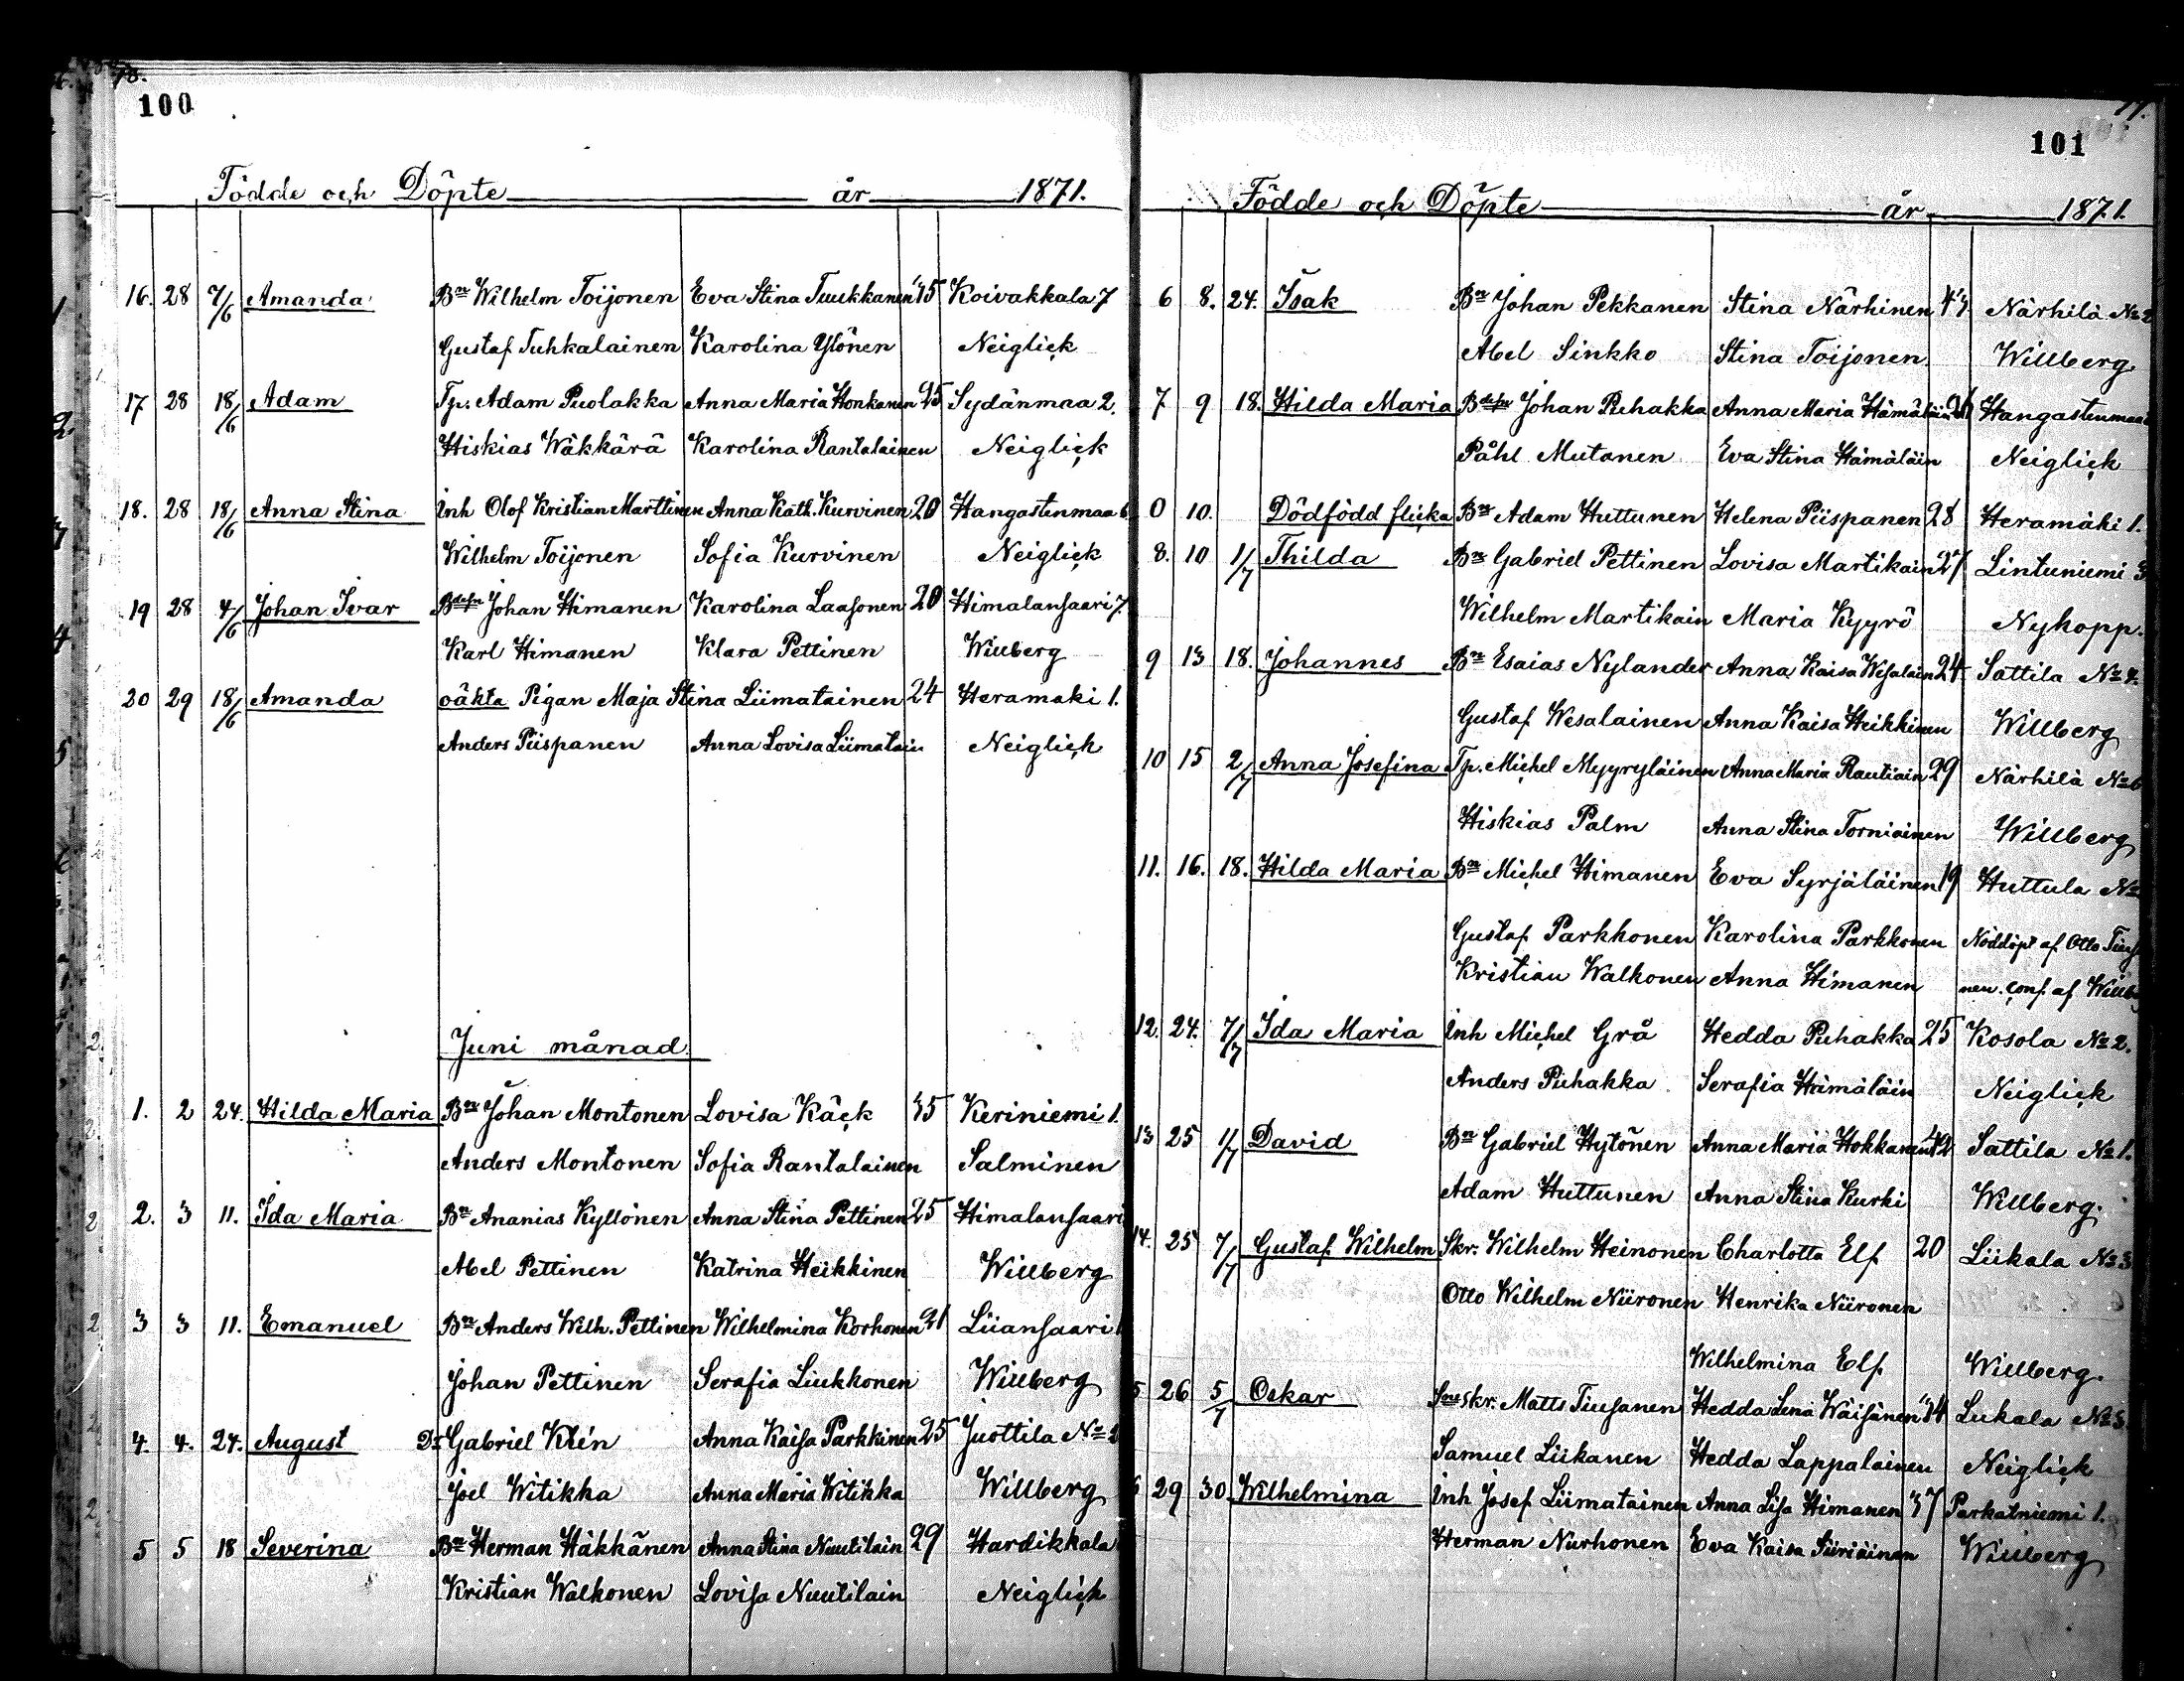 78.
100
Födde och Döpte år 1871.
16. 28 7/6 Amanda Bn Wilhelm Toijonen Eva Stina Tuukkanen 45 Koivakkala 7
Gustaf Tuhkalainen Karolina Ylönen Neiglick
17 28 18/6 Adam Tp. Adam Puolakka Anna Maria Honkanen 45 Sydänmaa 2.
Hiskias Wäkkärä Karolina Rantalainen Neiglick
18. 28 18/6 Anna Stina Inh Olof Kristian Marttinen Anna Kath. Kurvinen 20 Hangastenmaa 6
Wilhelm Toijonen Sofia Kurvinen Neiglick
19 28 4/6 Johan Ivar Bdesn Johan Himanen Karolina Laasonen 20 Himalansaari 7.
Karl Himanen Klara Pettinen Willberg
20 29 18/6 Amanda oäkta Pigan Maja Stina Liimatainen 24 Heramäki 1.
Anders Piispanen Anna Lovisa Liimatain Neiglick
Juni månad.
1. 2 24. Hilda Maria Bn Johan Montonen Lovisa Käck 35 Keriniemi 1.
Anders Montonen Sofia Rantalainen Salminen
2. 3 11. Ida Maria Bn Ananias Kyllönen Anna Stina Pettinen 25 Himalansaari
Abel Pettinen Katrina Heikkinen Willberg
3 3 11. Emanuel Bn Anders Wilh. Pettinen Wilhelmina Korhonen 21 Liiansaari
Johan Pettinen Serafia Liukkonen Willberg
4. 4. 24. August Dr Gabriel Klén Anna Kaisa Parkkinen 25 Juottila No 2
Joel Witikka Anna Maria Witikka Willberg
5 5 18 Severina Bn Herman Häkkänen Anna Stina Nuutilain 29 Hardikkala
Kristian Walkonen Lovisa Nuutilain Neiglick
101
Födde och Döpte år 1871.
6 8. 24. Isak Bn Johan Pekkanen Stina Närhinen 43 Närhilä No 2
Abel Sinkko Stina Toijonen Willberg
7 9 18. Hilda Maria Bdesn Johan Puhakka Anna Maria Hämäläin Hangastenmaa
Påhl Mutanen Eva Stina Hämäläin Neiglick
0 10. Dödfödd flicka Bn Adam Huttunen Helena Piispanen 28 Heramäki 1.
8. 10 1/7 Thilda Bn Gabriel Pettinen Lovisa Martikain 27 Lintuniemi 3
Wilhelm Martikain Maria Kyyrö Nykopp.
9 13 18. Johannes Bn Esaias Nylander Anna Kaisa Wesalain 24 Sattila No 4.
Gustaf Wesalainen Anna Kaisa Heikkinen Willberg
10 15 2/7 Anna Josefina Tp. Michel Myyryläinen Anna Maria Rautiain 29 Närhilä No 6
Hiskias Palm Anna Stina Torniainen Willberg
11. 16. 18. Hilda Maria Bn Michel Himanen Eva Syrjäläinen 19 Huttula No
Gustaf Parkkonen Karolina Parkkonen Nöddöpt af Otto Tius
Kristian Walkonen Anna Himanen nen. conf. af Willb
12. 24. 7/7 Ida Maria Inh Michel Grå Hedda Puhakka 25 Kosola No 2.
Anders Puhakka Serafia Hämäläin Neiglick
13 25 1/7 David Bn Gabriel Hytönen Anna Maria Hokkanen 42 Sattila No 1.
Adam Huttunen Anna Stina Kurki Willberg.
14. 25 7/7 Gustaf Wilhelm Skr. Wilhelm Heinonen Charlotta Elf 20 Liikala No 3
Otto Wilhelm Niironen Henrika Niironen
Wilhelmina Elf Willberg.
5 26 5/7 Oskar Sneskr. Matts Tiusanen Hedda Lena Wäisänen 34 Lukala No 3
Samuel Liikanen Hedda Lappalainen Neiglick
29 30 Wilhelmina Inh Josef Liimatainen Anna Lisa Himanen 37 Parkatniemi 1.
Herman Nurhonen Eva Kaisa Siiriäinen Willberg